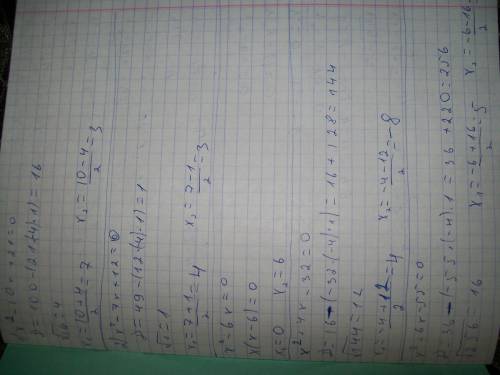 x² - 10 - +21=0
D=100-(21·(-4)·1)=16
√16=4
x₁=10+4/2=7 x₂=10-4/2=3
2) x²-7x+12=0
D=49-(12·(-4)·1)=1
√1=1
x₁=7+1/2=4 x₂=7-1/2=3
x²-6x=0
x(x-6)=0
x₁=0 x₂=6
x²+4x-32=0
D=16-(-32·(-4)·1)=16+128=144
√144=12
x₁=-4+12/2=4 x₂=-4-12/2=-8
x²+6x-55=0
D=36-(-55·(-4)·1=36+220=256
√256=16 x₁=-6+16/2=5 x₂=-6-16/2